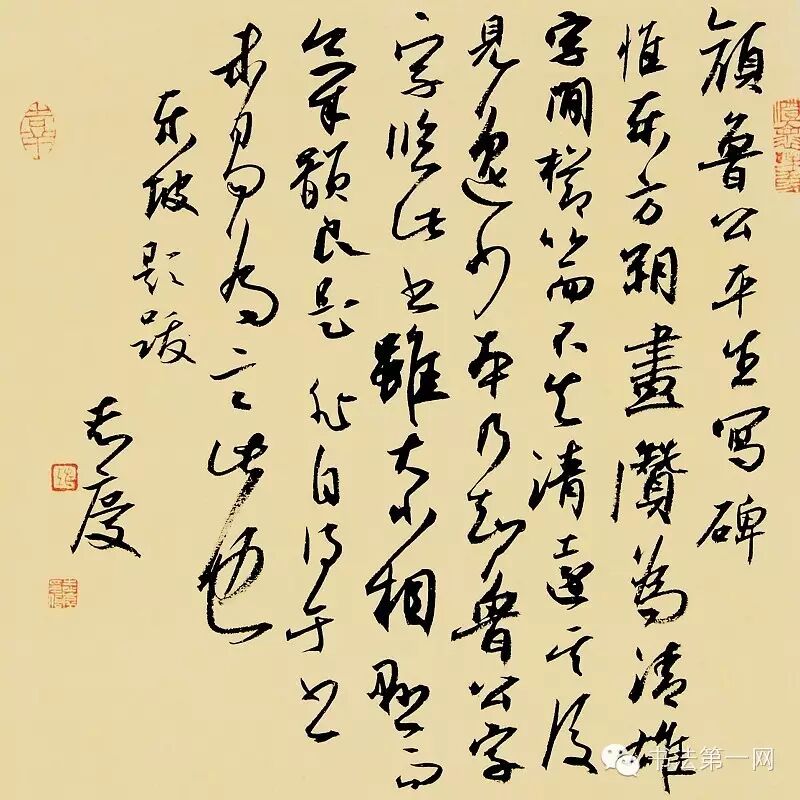 颜鲁公平生写碑
惟东方朔畫讚為清雄
字間櫛比而不失清遠其後
見逸少本乃知魯公字
字臨此书雖大小相懸而
氣韻良是非自得于书
未易为言此也
东坡题跋
志慶
书法第一网